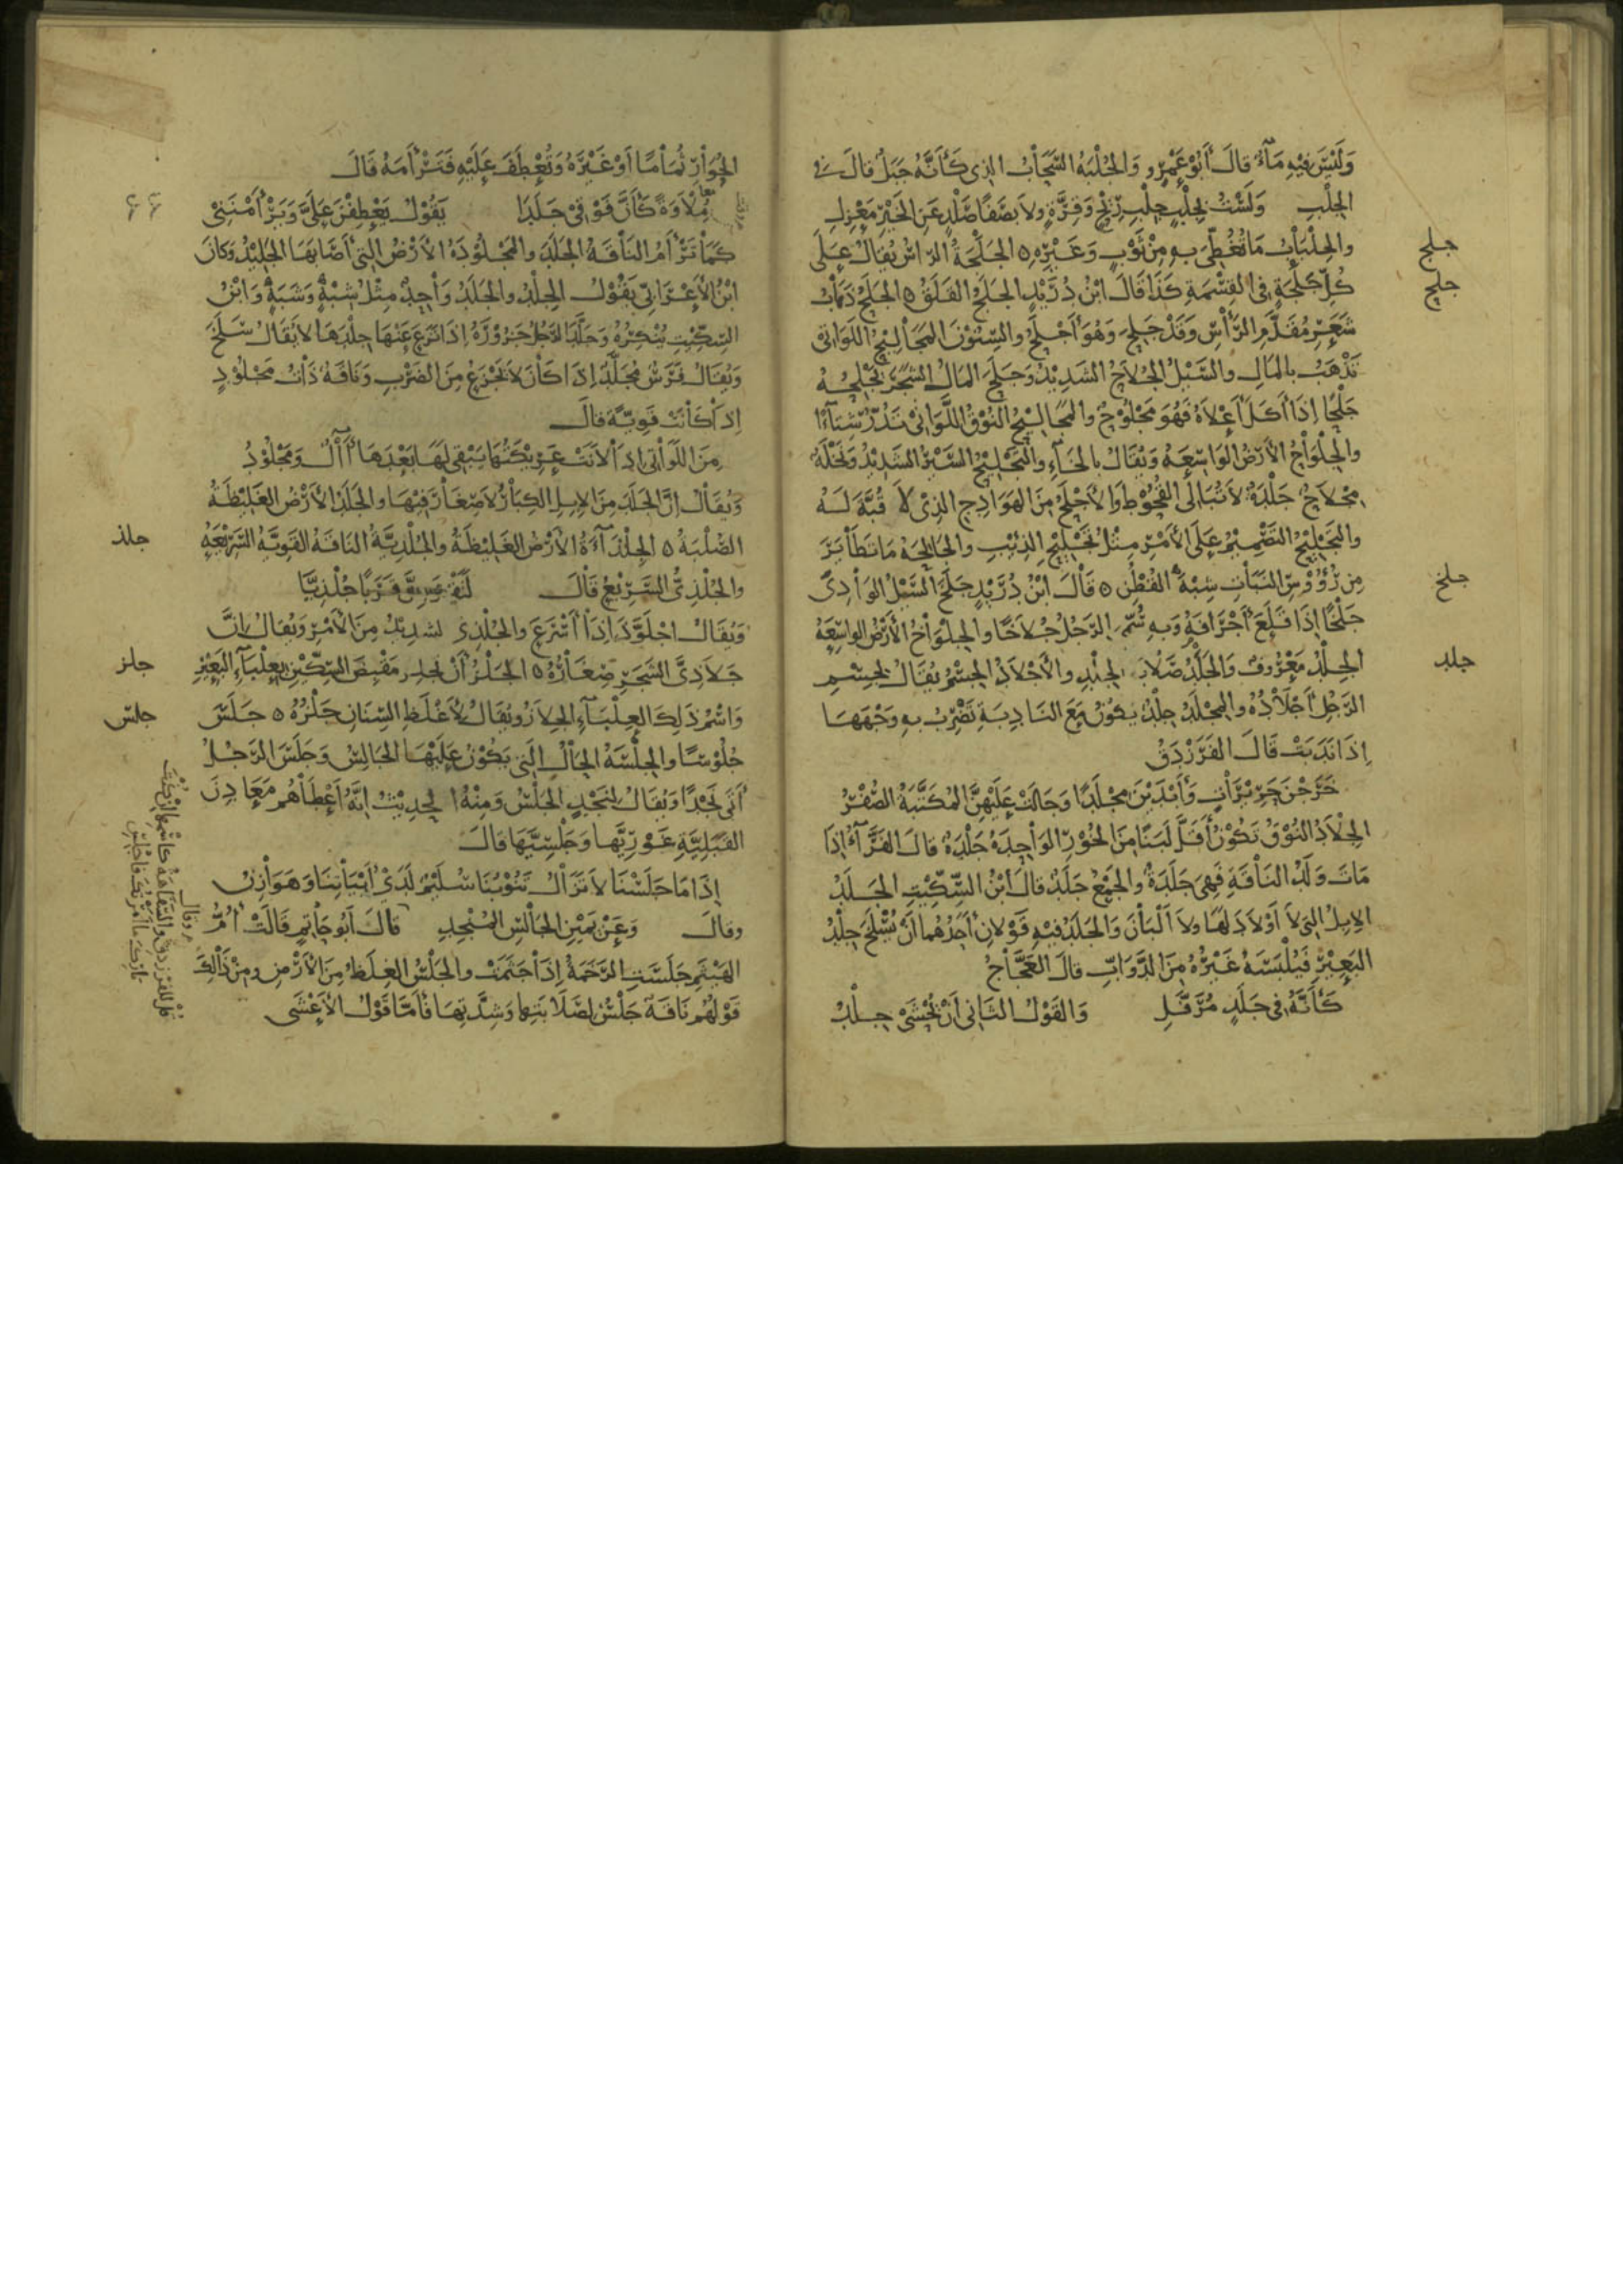 وَلَيْسَ فيْهِ مَآءٌ قالَ أبُوْ عَمْرٍو وَالجُلْبَةُ السَّحَابُ الذِى كَأنَّهُ جَبَلٌ قالَ فى
الجُلْبِ وَلَسْتُ بجُلْبٍ جُلْبِ رِيْحٍ وَقِرَّةٍ ولاَ بصَفًا صَلْدٍ عَنِ الخَيْرِ مَعْزِلِ
والجِلْبَابُ مَا تُغُطِّىَ بهِ مِنْ ثَوْبٍ وَغَيْرِهِ ٥ الجَلْحَةُ الرَّأسُ يُقَالُ عَلَى
جلح
كُلِّ جَلْحَةٍ فِى القِسْمَةِ كَذَا قَالَ ابْنُ دُرَيْدٍ الجَلَحُ الفَلَقُ ٥ الجَلَحُ ذَهَابُ
جلح
شَعَرِ مُقَدَّمِ الرَّأْسِ وَقَدْ جَلِحَ وَهُوَ أَجْلَحُ والسِّنُوْنَ المَجَالِيْحُ اللَّوَاتِى
تَذْهَبُ بالمَالِ والسَّيْلُ الجُلاَحُ الشَّدِيْدُ وَجَلَحَ المَالُ الشَّجَرَ يَجْلَحُهُ
جَلْحًا إذَا أكَلَ أَعْلاَهُ فَهُوَ مَجْلُوْحٌ والمَجَالِيْحُ النُّوْقُ اللَّوَاتِى تَدُرُّ شِتَآءً
والجِلْوَاحُ الأَرْضُ الوَاسِعَةُ وَيُقَالُ بالخَآءِ والتَّجْلِيْحُ السَّيْرُ الشَّدِيْدُ وَنَخْلَةٌ
مِجْلاَحٌ جَلْدَةٌ لاَ تُبَالِى القُحُوْطَ وَالأَجْلَحُ مِنَ الهَوَادِجِ الذِىْ لاَ قُبَّةَ لَهُ
والتَّجْلِيْحُ التَّصْمِيْمُ عَلَى الأَمْرِ مِثْلُ تَجْلِيْحِ الذِئْبِ والجَالِحَةُ مَا تَطَايَرَ
مِن رُؤُوْسِ النَّبَاتِ شِبْهُ القُطْنِ ٥ قَالَ ابْنُ دُرَيْدٍ جَلَخَ السَّيْلُ الوَادِىَ
جلخ
جَلْخًا إذَا قَلَعَ أَجْرَافَهُ وَبهِ سُمِّىَ الرَّجُلُ جُلاَخًا والجِلْوَاخُ الأَرْضُ الوَاسِعَةُ
الجِلْدُ مَعْرُوْفٌ وَالجَلَدُ صَلاَبَةُ الجِلْدِ والأَجْلاَدُ الجِسْمُ يُقَالُ لِجِسْمِ
جلد
الرَّجُلِ أجْلاَدُهُ والمِجْلَدُ جِلْدٌ يَكُوْنُ مَعَ النَادِبَةِ تَضْرِبُ بهِ وَجْهَهَا
إذَا نَدَبَتْ قَالَ الفَرَزْدَقُ
خَرَجْنَ حَرِيْرَاتٍ وَأَبْدَيْنَ مِجْلَدًا وَجَالَتْ عَلَيْهِنَّ المُكَتَّبَةُ الصُّفْرُ
الجِلاَدُ النُّوْقُ تَكُوْنُ أَقَلَّ لَبَنًا مِنَ الخُوْرِ الوَاحِدَةُ جَلْدَةٌ قالَ الفَرَّآءُ إذَا
مَاتَ وَلَدُ النَّاقَةِ فَهِىَ جَلَدَةٌ والجَمْعُ جَلَدٌ قالَ ابْنُ السِّكِّيْتِ الجَلَدُ
الإبِلُ التِى لاَ أوْلاَدَ لَهَا ولاَ ألْبَانَ وَالجَلَدُ فيْهِ قَوْلاَنِ أَحَدُهُمَا أنْ يُسْلَخَ جِلْدُ
البَعِيْرِ فَيُلْبَسَهُ غَيْرُهُ مِنَ الدَّوَابِّ قالَ العَجَّاجُ
كَأنَّهُ فِى جَلَدٍ مُرَفَّلِ وَالقَوْلُ الثَّانِى أنْ يُحْشَى جِلْدُ
الحُوَارِ ثُمَامًا أوْ غَيْرَهُ وَتُعْطَفَ عَلَيْهِ فَتَرْأَمَهُ قَالَ
مُلاَوَةً كَأنَّ فَوْقِىْ جَلَدَا يَقُوْلُ يَعْطِفْنَ عَلَىَّ وَيَرْأَمْنَنِىْ
٤٤
كَمَا تَرْأَمُ النَّاقَةُ الجَلَدَ والمَجْلُوْدَةُ الأَرْضُ التِى أصَابَهَا الجَلِيْدُ وَكَانَ
ابْنُ الأَعْرَابِىِّ يَقُوْلُ الجِلْدُ والجَلَدُ وَاحِدٌ مِثْلُ شِبْهٍ وَشَبَهٍ وَابْنُ
السِّكِّيْتِ يُنْكِرُهُ وَجَلَّدَ الرَّجُلُ جَزُوْرَهُ إذَا نَزَعَ عَنْهَا جِلْدَهَا لاَ يُقَالُ سَلَخَ
وَيُقَالُ فَرَسٌ مُجَلَّدٌ إذَا كَانَ لاَ يَجْزَعُ مِنَ الضَرْبِ وَنَاقَةٌ ذَاتُ مَجْلُوْدٍ
إذَا كَانَتْ قَوِيَّةً قالَ
مِنَ اللَّوَاتِى إذَا لاَنَتْ عَرِيْكَتُهَا يَبْقَى لَهَا بَعْدَهَا أَلٌّ وَمَجْلُوْدُ
وَيُقَالُ إنَّ الجَلَدَ مِنَ الإبِلِ الكِبَارُ لاَ صِغَارَ فِيْهَا والجَلَدُ الأَرْضُ الغَلِيْظَةُ
الصُّلْبَةُ ٥ الجِلْذَآءَةُ الأَرْضُ الغَلِيْظَةُ والجُلْذِيَّةُ النَاقَةُ القَوِيَّةُ السَّرِيْعَةُ
جلذ
والجُلْذِىُّ السَّرِيْعُ قَالَ لَتَقْرُبِنَّ قَرَبًا جُلْذِيَّا
وَيُقَالُ اجْلَوَّذَ إذَا أَسْرَعَ والجُلْذِى لشَدِيْدُ مِنَ الأَمْرِ وَيُقَالُ إنَّ
جَلاَذِىَّ الشَجَرِ صِغَارُهُ ٥ الجَلْزُ أنْ تَجْلِزَ مَقْبِضَ السِّكِّيْنِ بِعِلْبَآءِ البَعِيْرِ
جلز
وَاسْمُ ذَلِكَ العِلْبَآءِ الجِلاَزُ وَيُقَالُ لأَغْلَظِ السِّنَانِ جَلْزُهُ ٥ جَلَسَ
جلس
جُلُوْسًا والجِلْسَةُ الحَالُ التِى يَكُوْنُ عَلَيْهَا الجَالِسُ وَجَلَسَ الرَّجُلُ
أتَى نَجْدًا وَيُقَالُ لِنَجْدٍ الجَلْسُ وَمِنْهُ الحَدِيْثُ إنَّهُ أَعْطَاهُمْ مَعَادِنَ
القَبَلِيَّةِ غَوْرِيَّهَا وَجَلْسِيَّهَا قالَ
إذَا مَا جَلَسْنَا لاَ تَزَالُ تَنُوْبُنَا سُلَيْمٌ لَدَىْ أَبْيَاتِنَا وَهَوَازِنُ
وقالَ وَعَنْ يَمِيْنِ الجَالِسِ المُنْجِدِ قالَ أبُوْ حَاتِمٍ قَالَتْ أُمُّ
الهَيْثَمِ جَلَسَتِ الرَّخَمَةُ إذَا جَثَمَتْ والجَلْسُ الغِلَظُ مِنَ الأَرْضِ ومِنْ ذَالِكَ
قَوْلُهُمْ نَاقَةٌ جَلْسٌ لِصَلاَبَتِهَا وَشِدَّتِهَا فأمَّا قَوْلُ الأَعْشَى
وقال
قل للفرزدق والسفاهة كاسمها إن كنت
تارك ما أمرتك فاجلس